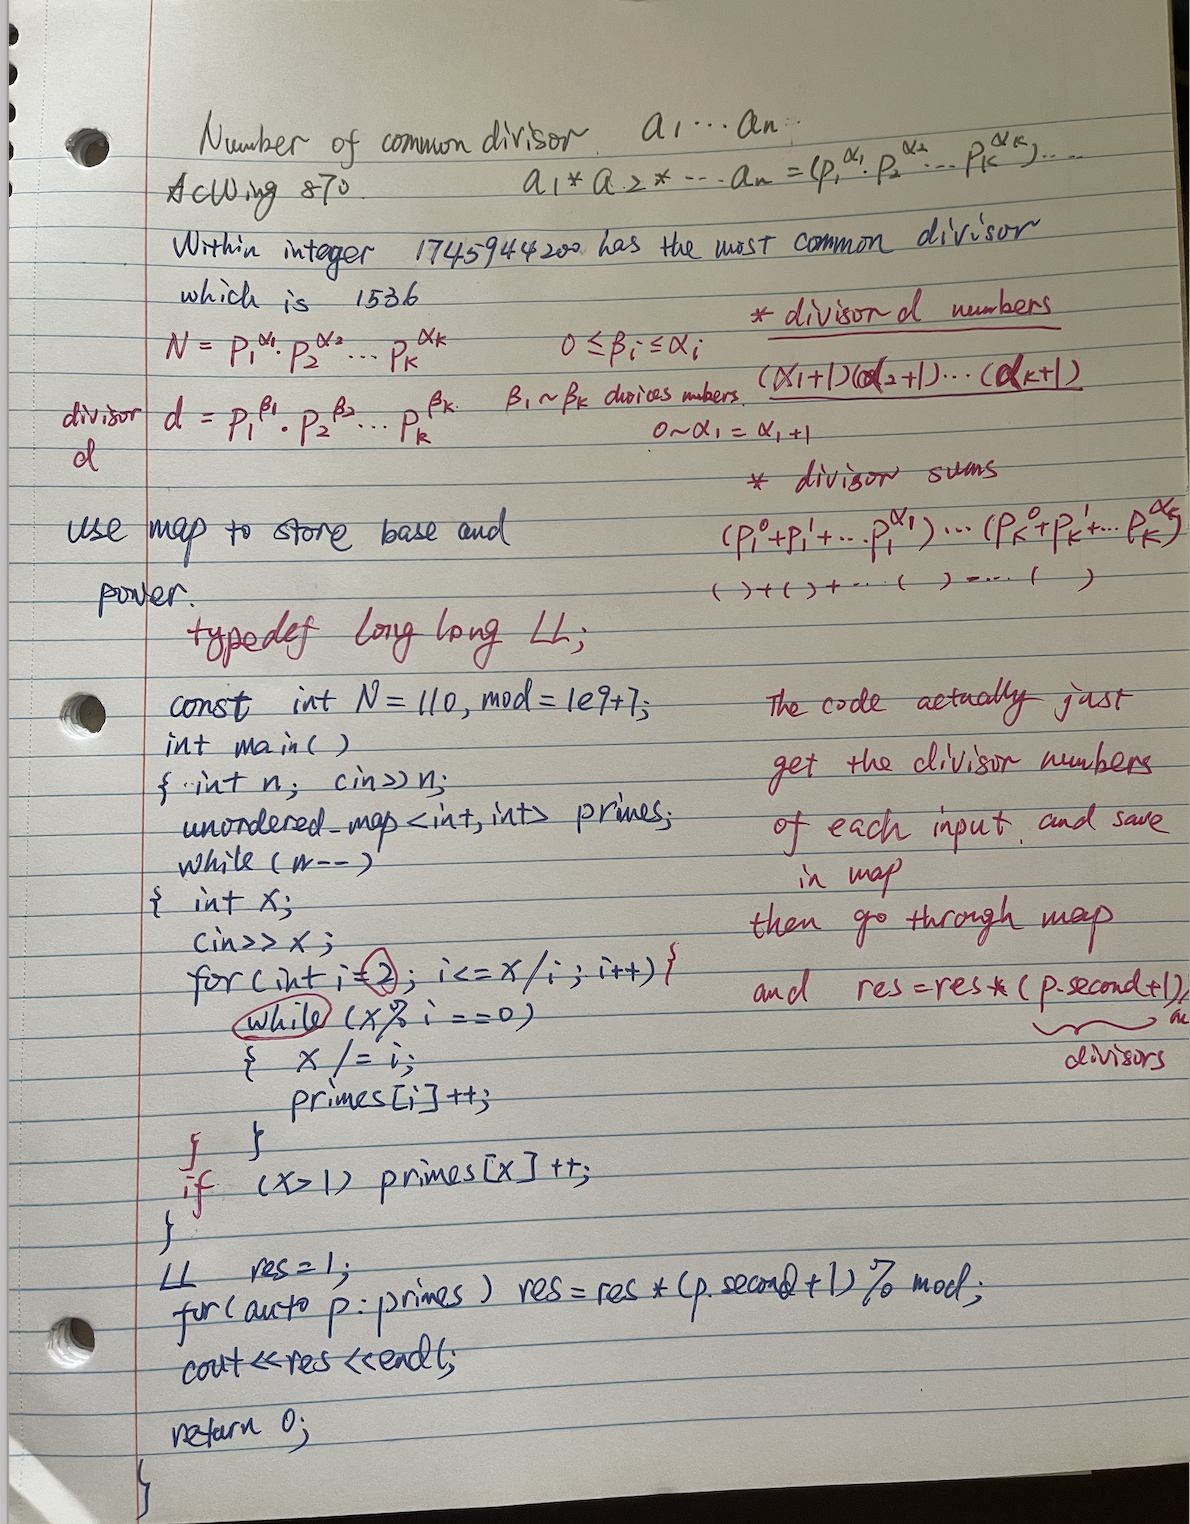 Number of common divisor. a1 ... an..
AcWing 870. a1 * a2 * ... an = (p1^α1 · p2^α2 ... pK^αK)....
Within integer 1745944200 has the most common divisor
which is 1536
* divisor d numbers
N = p1^α1 · p2^α2 ... pK^αK 0 ≤ βi ≤ αi
(α1+1)(α2+1)... (αK+1)
divisor d = p1^β1 · p2^β2 ... pK^βK. β1 ~ βK choices numbers
d 0~α1 = α1+1
* divisor sums
use map to store base and
(p1^0+p1^1+...p1^α1) ... (pK^0+pK^1+... pK^αK)
power. ( )+( )+ ... ( ) ..... ( )
typedef long long LL;
const int N = 110, mod = 1e9+7;
int main()
{ int n; cin>>n;
unordered_map <int, int> primes;
while (n--)
{ int x;
cin>> x;
for (int i=2; i<=x/i; i++) {
while (x% i ==0)
{ x /= i;
primes[i]++;
} }
if (x>1) primes[x]++;
}
LL res=1;
for(auto p: primes) res=res *(p.second+1) % mod;
cout <<res <<endl;
return 0;
}
The code actually just
get the divisor numbers
of each input. and save
in map
then go through map
and res=res*(p.second+1)
divisors